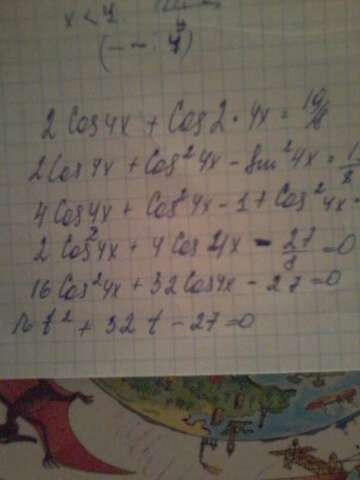 x < 4
(– – 4)
2 Cos 4x + Cos 2 · 4x = 19/8
2 Cos 4x + Cos² 4x – Sin² 4x =
4 Cos 4x + Cos² 4x – 1 + Cos² 4x
2 Cos² 4x + 4 Cos 4x – 27/8 = 0
16 Cos² 4x + 32 Cos 4x – 27 = 0
16 t² + 32 t – 27 = 0